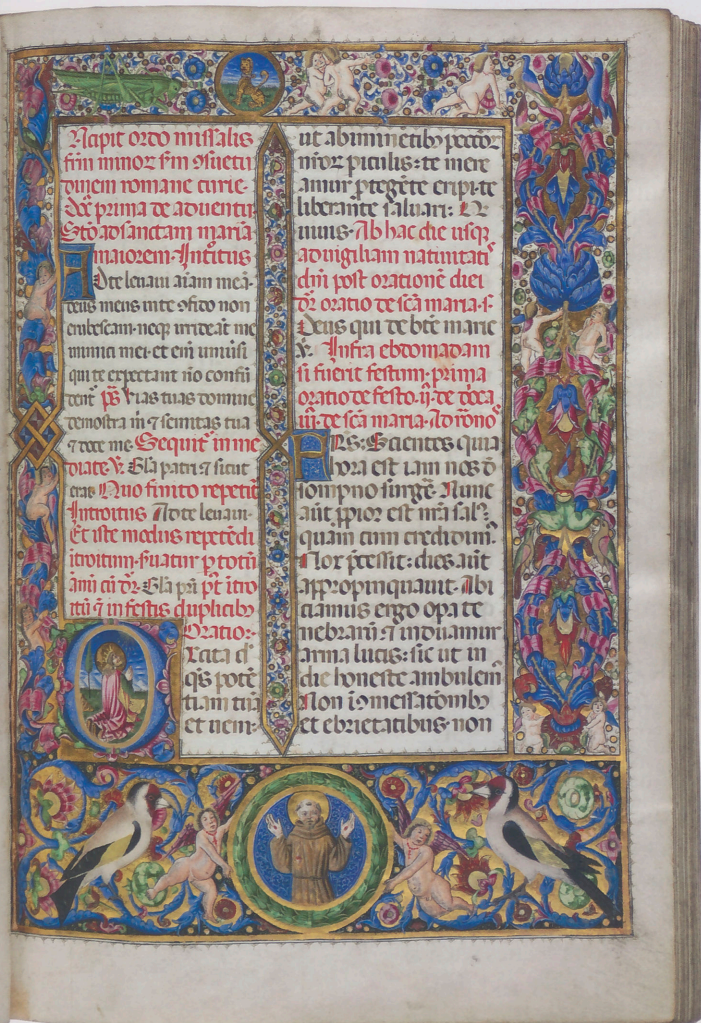 Ncipit ordo missalis
frm̄ minoꝝ s̄m ɔsuetu
dinem romane curie·
Dc̄a prima de aduentu
Stō ad sanctam mariā
maiorem· Introitus
Ad te leuaui aīam meā
deus meus in te ɔfido non
erubescam· neqꝫ irrideāt me
inimici mei· et eīm uniūsi
qui te expectant nō confū
dent̄ ps̄ Vias tuas domine
demōstra m̄ ⁊ semitas tuas
⁊ doce me· Sequit̄ īme
diate ℣. Gl̄a patri ⁊ sicut
erat Quo finito repetit̄
Introitus Ad te leuaui·
Et iste modus repetēdi
ītroitum· ẜuatur ꝑ totū
ānū cū dr̄· Gl̄a pr̄i pꝰt ītro
itū ⁊ in festis duplicibꝫ
Oratio·
Excita dn̄e
qs̄ potē
tiam tuā
et ueni·
ut ab iminētibꝫ pecc̄oꝝ
nr̄oꝝ piculis: te mere
amur ꝓtegēte eripi· te
liberante saluari: Qui
uiuis· Ab hac die usqꝫ
ad uigiliam natiuitatis
dn̄i post orationē diei
dr̄ oratio de sc̄a maria· s·
Deus qui de btē marie
℣. Infra ebdomadam
si fuerit festum· prima
oratio de festo· ij· de dn̄ica
iij· de sc̄a maria· Ad rōnos
FRs: Scientes quia
hora est iam nos d̄
sompno surgē· Nunc
aūt ꝓpior est nr̄a salꝰ·
quam cum credidimꝰ·
Nox p̄cessit: dies aūt
appropinquauit· Abi
ciamus ergo opa te
nebrarū ⁊ induamur
arma lucis: sic ut in
die honeste ambulemꝰ
Non ī ↄmessatōnibꝫ
et ebrietatibus· non